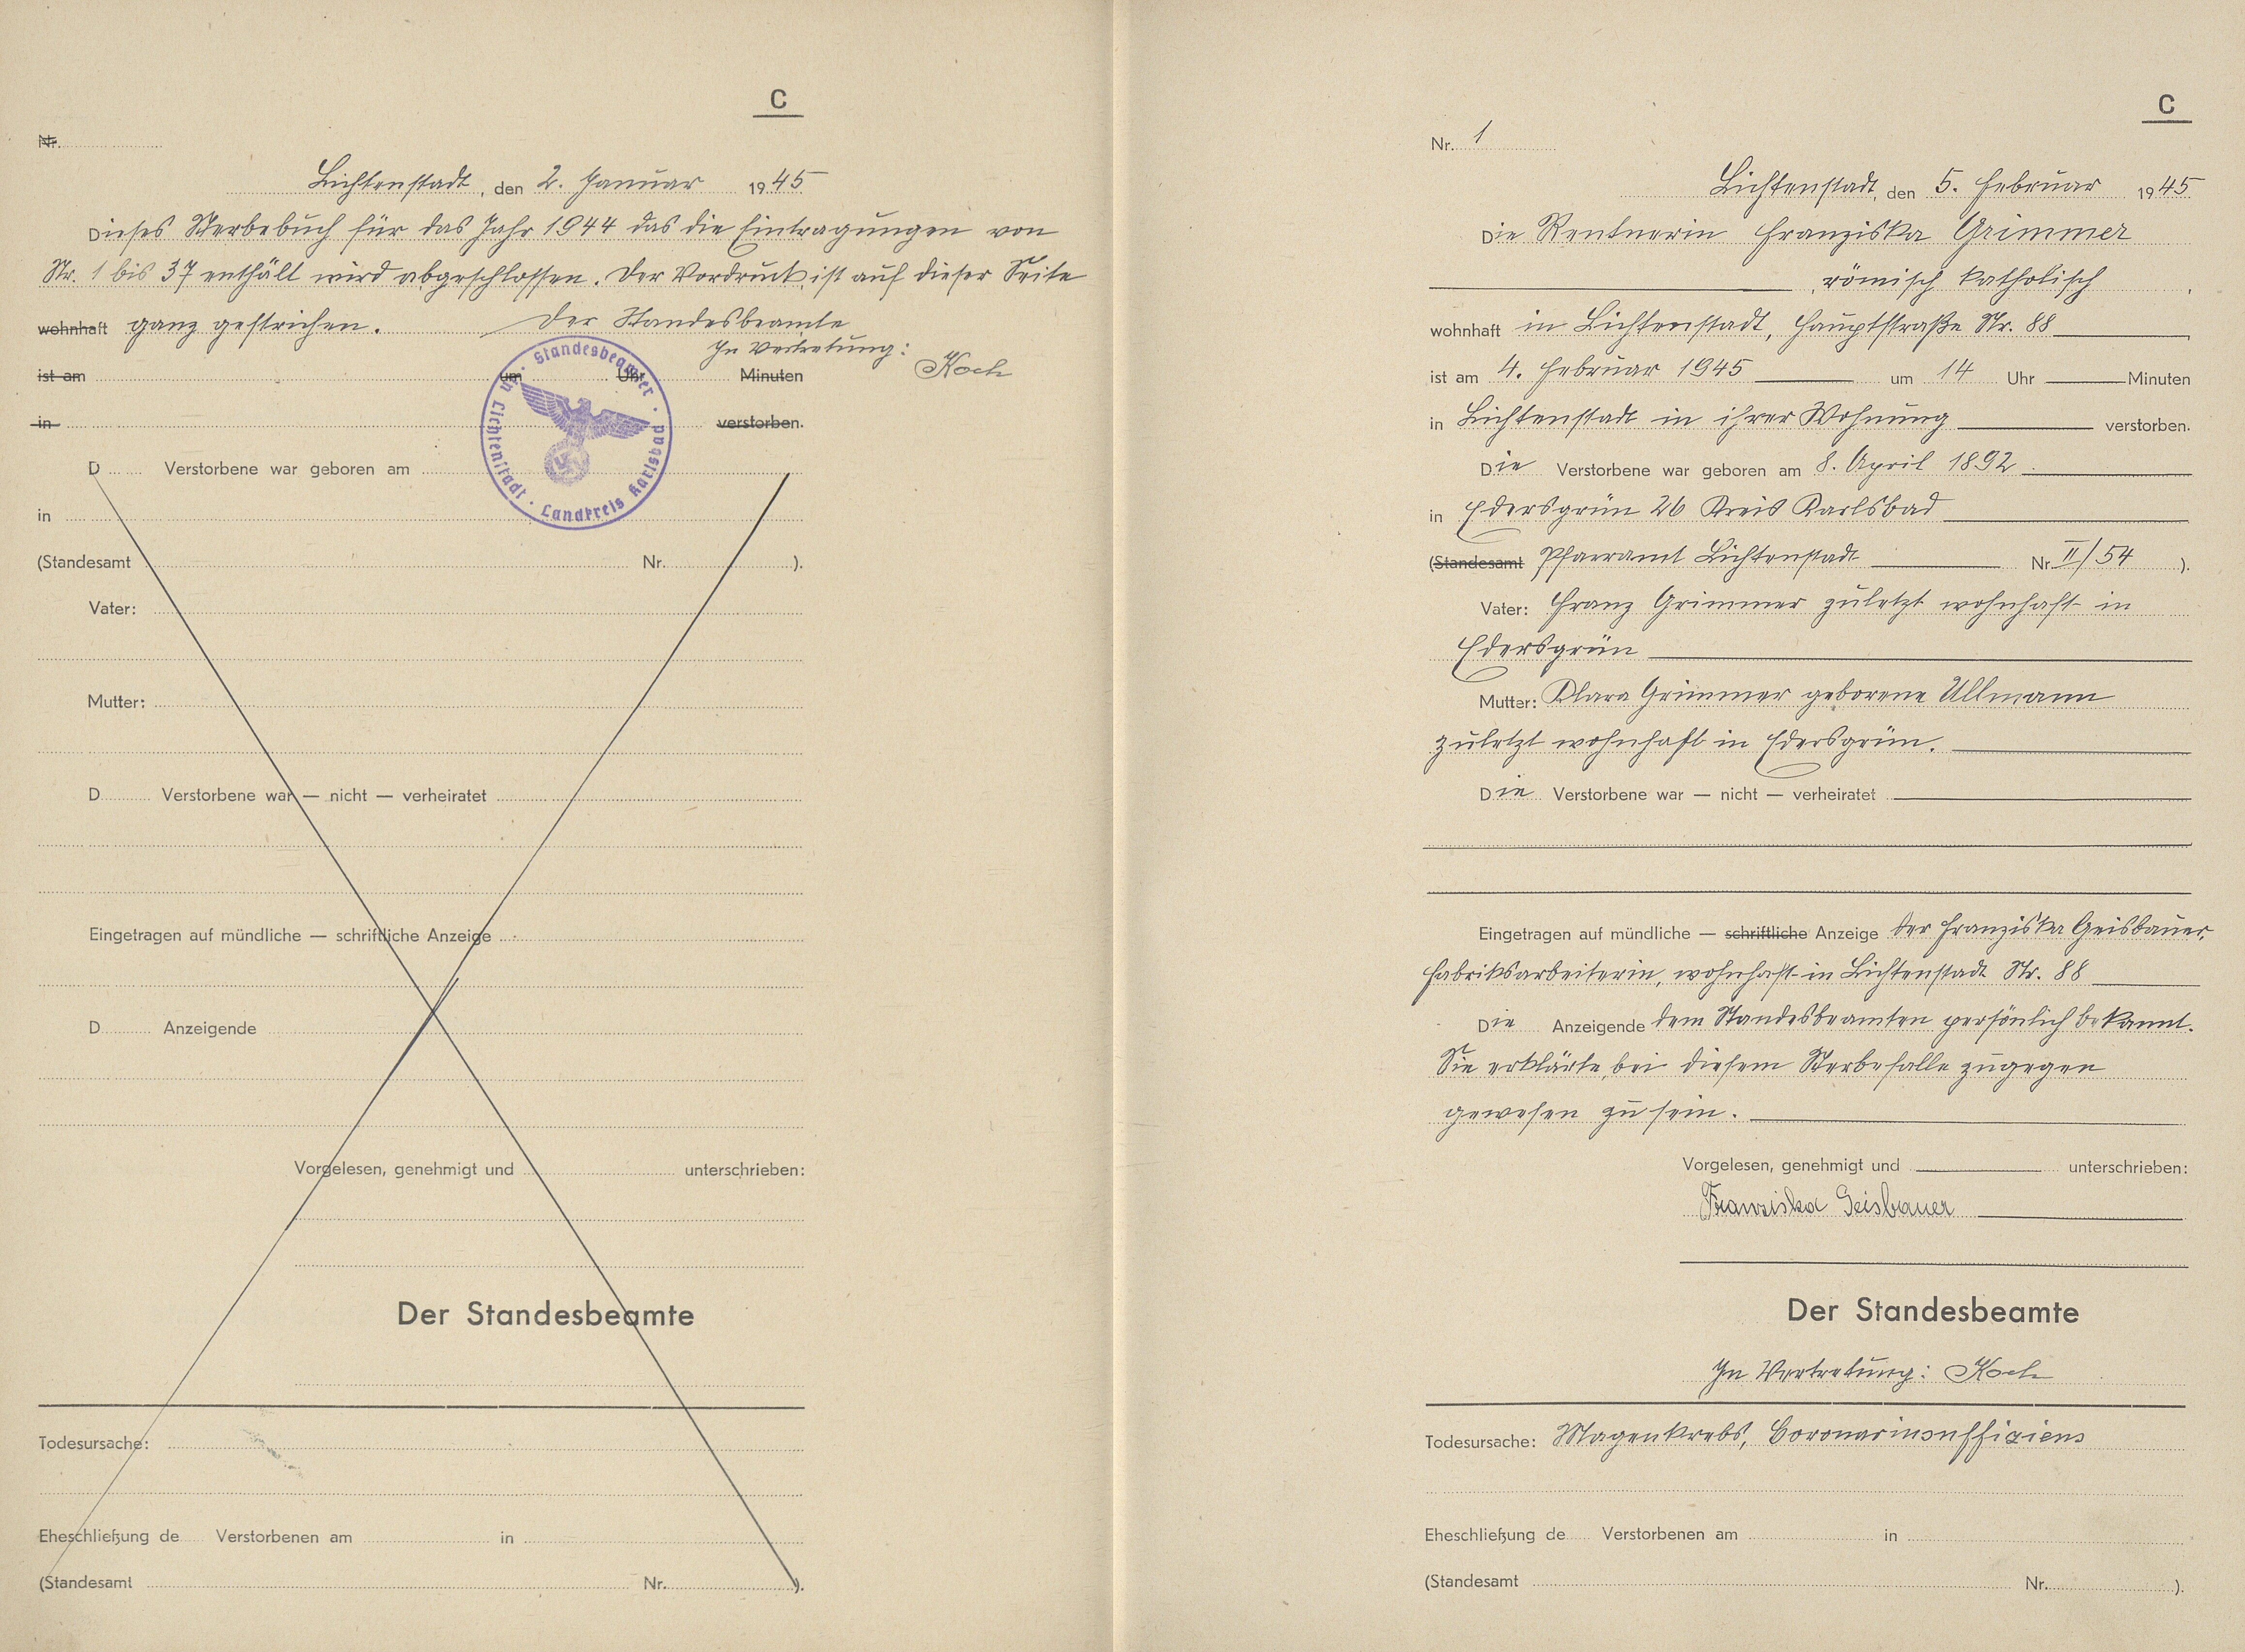 C
Nr.
Lichtenstadt, den 2. Januar 1945
Dieses Sterbebuch für das Jahr 1944 das die Eintragungen von
Nr. 1 bis 37 enthält wird abgeschlossen. Der Vordruck ist auf dieser Seite
wohnhaft ganz gestrichen. Der Standesbeamte
In Vertretung:
Koch
ist am um Uhr Minuten
in verstorben.
Standesbeamter · Landkreis Karlsbad · Lichtenstadt
D Verstorbene war geboren am
in
(Standesamt Nr. ).
Vater:
Mutter:
D Verstorbene war — nicht — verheiratet
Eingetragen auf mündliche — schriftliche Anzeige
D Anzeigende
Vorgelesen, genehmigt und unterschrieben:
Der Standesbeamte
Todesursache:
Eheschließung de Verstorbenen am in
(Standesamt Nr. ).
C
Nr. 1
Lichtenstadt, den 5. Februar 1945
Die Rentnerin Franziska Grimmer
römisch katholisch ,
wohnhaft in Lichtenstadt, Hauptstraße Nr. 88
ist am 4. Februar 1945 um 14 Uhr Minuten
in Lichtenstadt in ihrer Wohnung verstorben.
Die Verstorbene war geboren am 8. April 1892
in Edersgrün 26 Kreis Karlsbad
(Standesamt Pfarramt Lichtenstadt Nr. II/54 ).
Vater: Franz Grimmer zuletzt wohnhaft in
Edersgrün
Mutter: Klara Grimmer geborene Ullmann
zuletzt wohnhaft in Edersgrün.
Die Verstorbene war — nicht — verheiratet
Eingetragen auf mündliche — schriftliche Anzeige der Franziska Geisbauer,
Fabriksarbeiterin, wohnhaft in Lichtenstadt Nr. 88
Die Anzeigende dem Standesbeamten persönlich bekannt.
Sie erklärte, bei diesem Sterbefalle zugegen
gewesen zu sein.
Vorgelesen, genehmigt und unterschrieben:
Franziska Geisbauer
Der Standesbeamte
In Vertretung: Koch
Todesursache: Magenkrebs, Coronarinsuffiziens
Eheschließung de Verstorbenen am in
(Standesamt Nr. ).